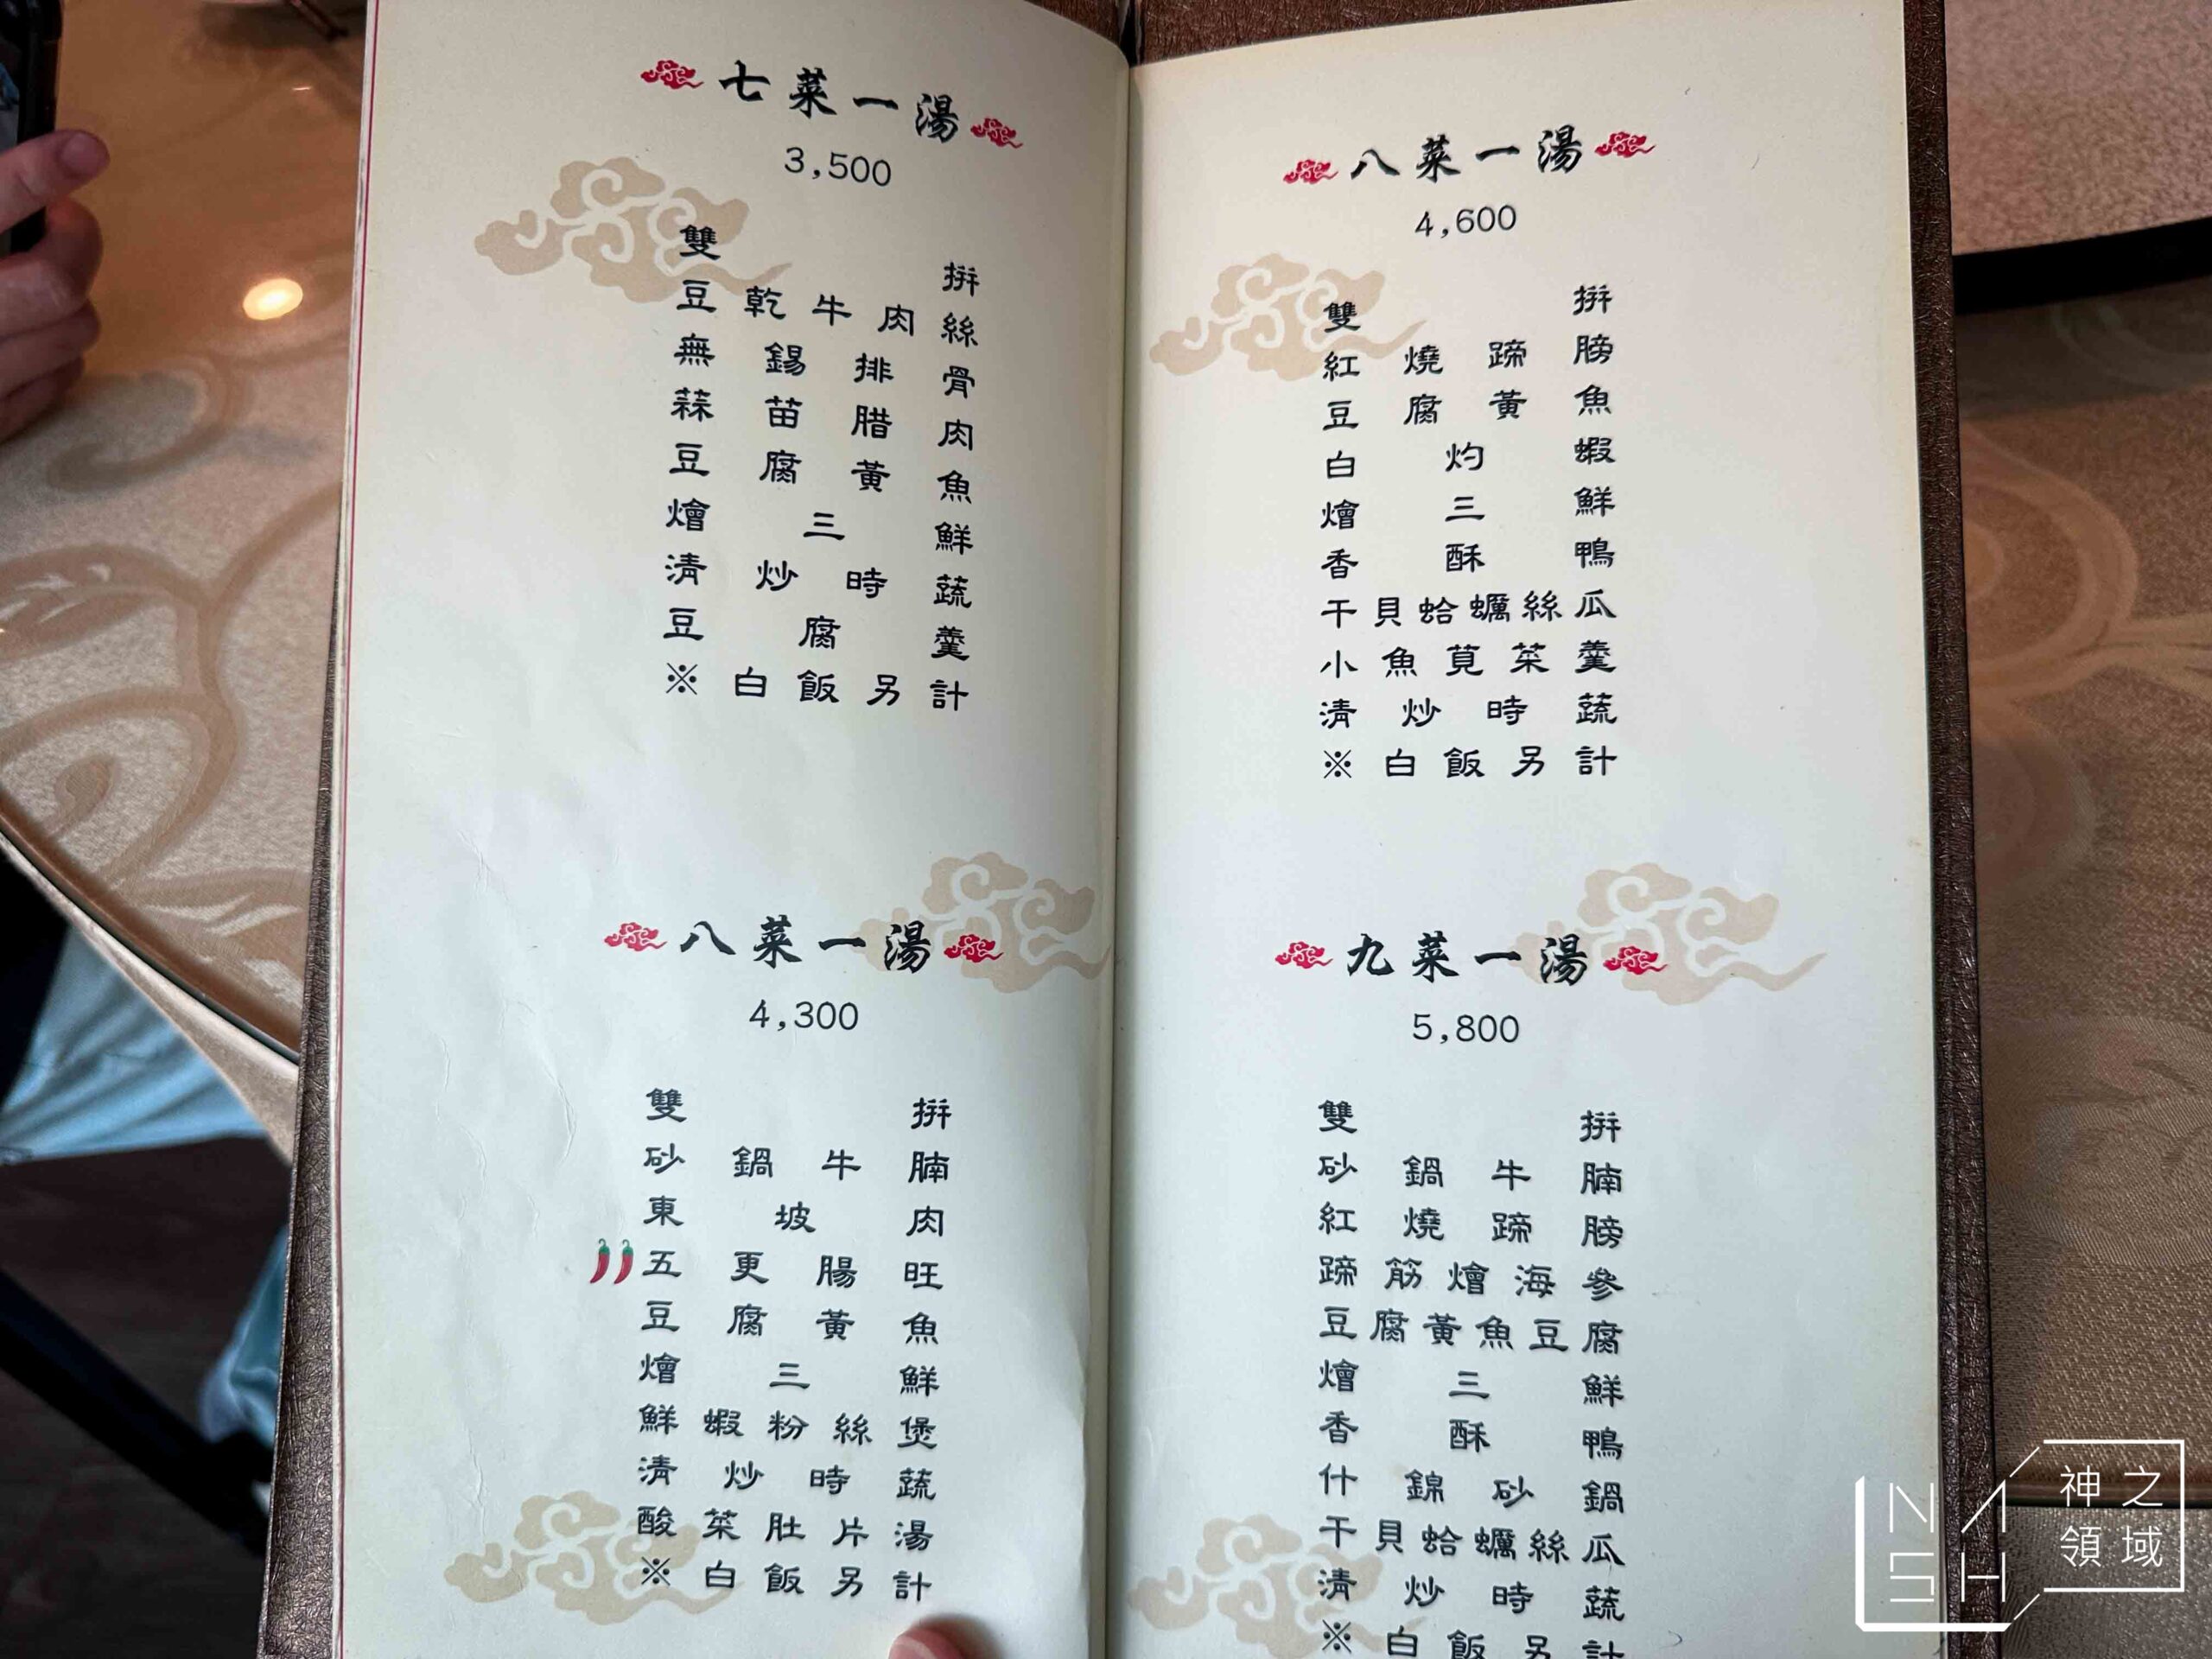 七菜一湯
3,500
雙拼
豆乾牛肉絲
無錫排骨
蒜苗腊肉
豆腐黃魚
燴三鮮
清炒時蔬
豆腐羹
※白飯另計
八菜一湯
4,300
雙拼
砂鍋牛腩
東坡肉
五更腸旺
豆腐黃魚
燴三鮮
鮮蝦粉絲煲
清炒時蔬
酸菜肚片湯
※白飯另計
八菜一湯
4,600
雙拼
紅燒蹄膀
豆腐黃魚
白灼蝦
燴三鮮
香酥鴨
干貝蛤蠣絲瓜
小魚莧菜羹
清炒時蔬
※白飯另計
九菜一湯
5,800
雙拼
砂鍋牛腩
紅燒蹄膀
蹄筋燴海參
豆腐黃魚豆腐
燴三鮮
香酥鴨
什錦砂鍋
干貝蛤蠣絲瓜
清炒時蔬
※白飯另計
NASH
神之領域